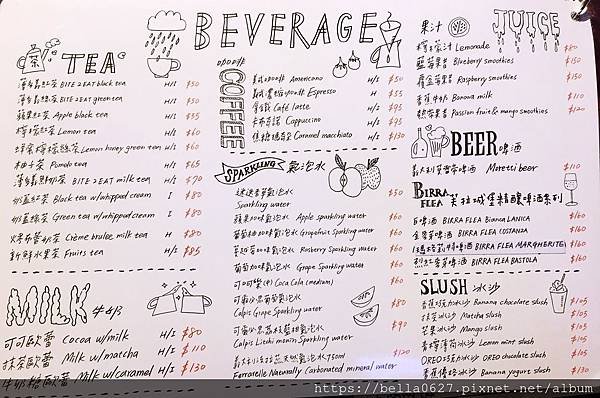 BEVERAGE
TEA
BITE 2 EAT black tea H/I $50
BITE 2 EAT green tea $50
蘋果紅茶 Apple black tea $55
檸檬紅茶 Lemon tea $60
Lemon honey green tea H/I $60
柚子茶 Pomelo tea H/I $65
BITE 2 EAT milk tea H/I $70
奶蓋紅茶 Black tea w/whipped cream I $80
奶蓋綠茶 Green tea w/whipped cream I $80
烤布蕾奶茶 Crème brulee milk tea H $80
新鮮水果茶 Fruits tea H/I $85
MILK 牛奶
可可歐蕾 Cocoa w/milk H/I $80
抹茶歐蕾 Milk w/matcha H/I $110
牛奶糖歐蕾 Milk w/caramel H/I $130
COFFEE
美式咖啡 Americano H/I $50
Espresso H/I $55
拿鐵 Café latte H/I $95
卡布奇諾 Cappuccino H/I $95
焦糖瑪奇朵 Caramel macchiato H/I $130
SPARKLING 氣泡水
Sparkling water $50
蘋果口味氣泡水 Apple sparkling water $60
葡萄柚口味氣泡水 Grapefruit Sparkling water $60
Rosberry Sparkling water $60
葡萄口味氣泡水 Grape Sparkling water $60
可口可樂(中) Coca Cola (medium) $60
可爾必思葡萄氣泡水
Calpis Grape Sparkling water $80
可爾必思荔枝藍柑氣泡水
Calpis Litchi marin Sparkling water $90
750ml
Ferrarelle Naturally Carbonated mineral water $120
果汁 JUICE
Lemonade $80
藍莓果昔 Blueberry smoothies $80
覆盆莓果昔 Raspberry smoothies $80
香蕉牛奶 Banana milk $110
Passion fruit & mango smoothies $120
BEER 啤酒
Moretti beer $110
BIRRA FLEA 芙拉城堡精釀啤酒系列
白啤酒 BIRRA FLEA Bianca LANICA $160
金麥芽啤酒 BIRRA FLEA COSTANZA $160
瑪格莉特啤酒 BIRRA FLEA MARGHERITE $160
烈紅麥芽啤酒 BIRRA FLEA BASTOLA $160
SLUSH 冰沙
香蕉巧克力冰沙 Banana chocolate slush $105
抹茶冰沙 Matcha slush $105
芒果冰沙 Mango slush $105
檸檬薄荷冰沙 Lemon mint slush $105
OREO巧克力冰沙 OREO chocolate slush $105
香蕉優格冰沙 Banana yogurt slush $130
https://bella0627.pixnet.net/album